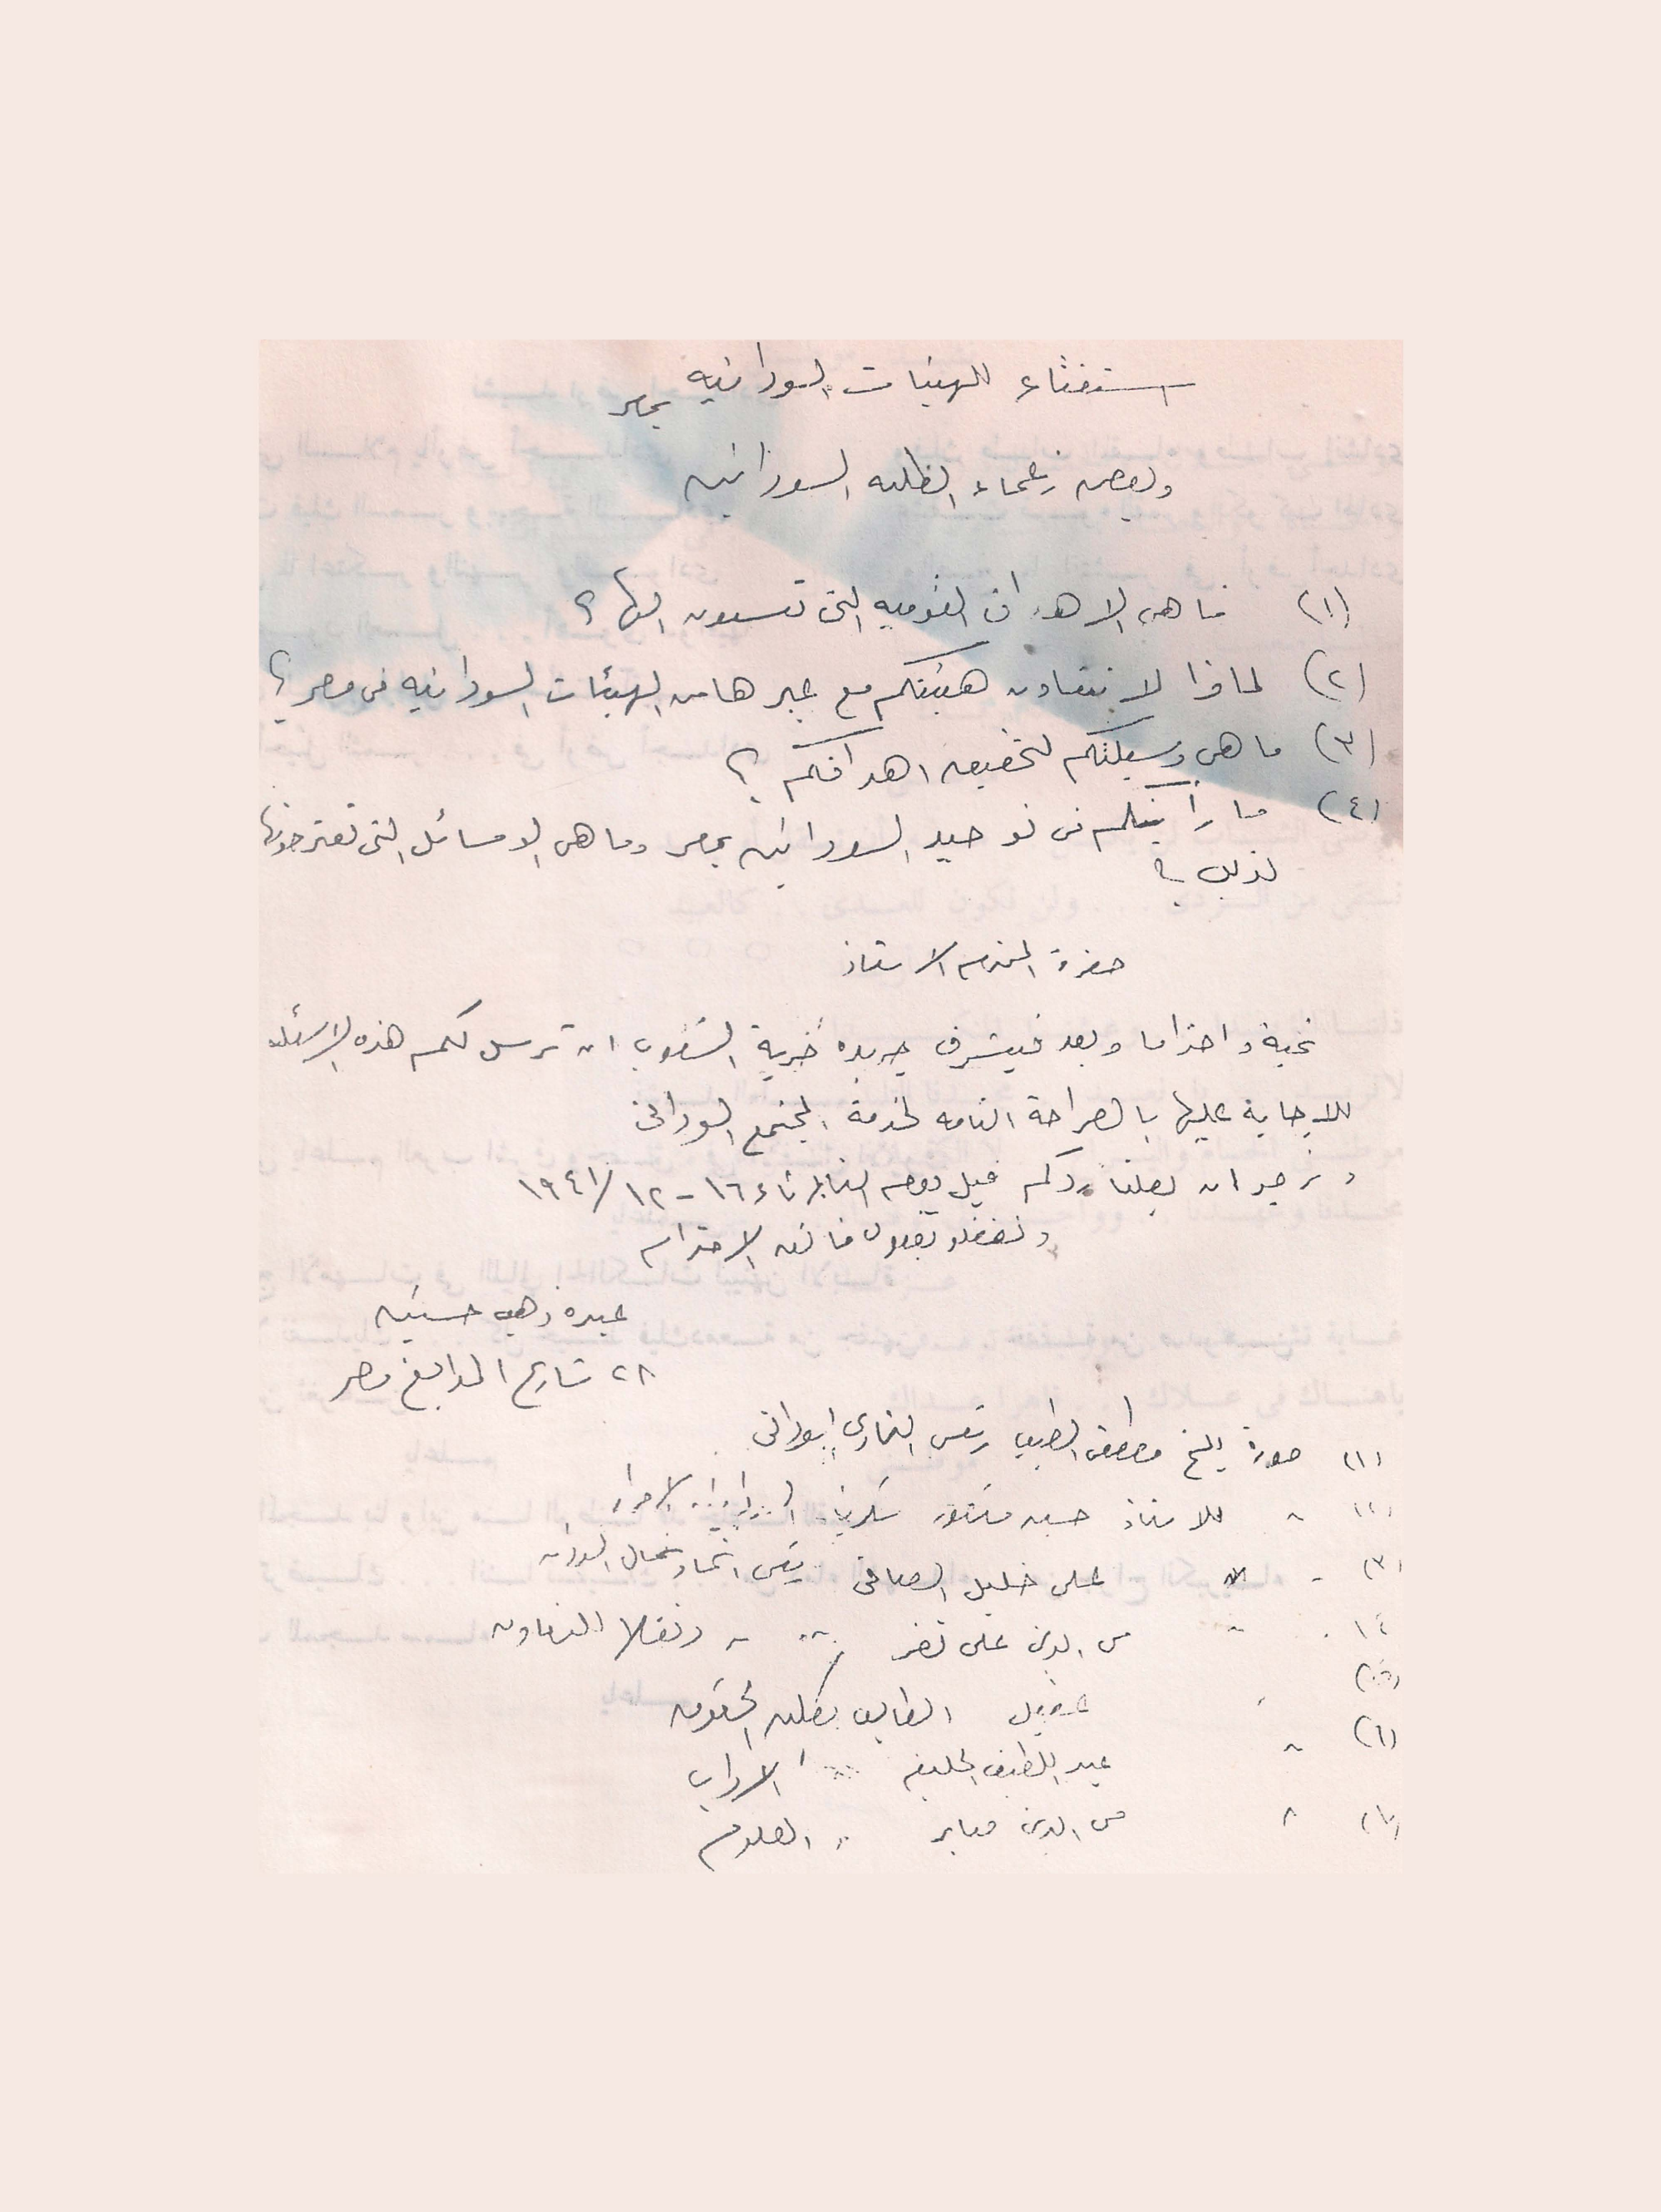 استفتاء للهيئات السودانيه بمصر
وبعض زعماء الطلبه السودانين
(١) ما هى الاهداف القوميه التى تسعون اليها ؟
(٢) لماذا لا تتعاون هيئتكم مع غيرها من الهيئات السودانيه فى مصر ؟
(٣) ما هى وسيلتكم لتحقيق اهدافكم ؟
(٤) ما رأيكم فى توحيد السودانين بمصر وما هى الوسائل التى تقترحونها
لذلك ؟
حضرة المحترم الاستاذ
تحية واحتراما وبعد فيتشرف جريده حرية الشعوب ان ترسل لكم هذه الاسئله
للاجابة عليها بالصراحة التامه لخدمة المجتمع السودانى
ونرجو ان يصلنا ردكم قبل يوم الثلاثاء ١٦-١٢/١٩٤١
وتفضلو بقبول فائق الاحترام
عبده دهب حسنين
٢٨ شارع المدابغ مصر
(١) صورة الشيخ مصطفى الطيب رئيس النادى السودانى
(٢) " للاستاذ حسن منشور سكرتير الاحرار
(٣) " على خليل الصافى رئيس اتحاد شمال السودان
(٤) " محى الدين على نصر " دنقلا التعاون
(٥) " عقيل الطالب بكليه الحقوق
(٦) " عبد اللطيف الخليفه " الاداب
(٧) " محى الدين صابر " العلوم